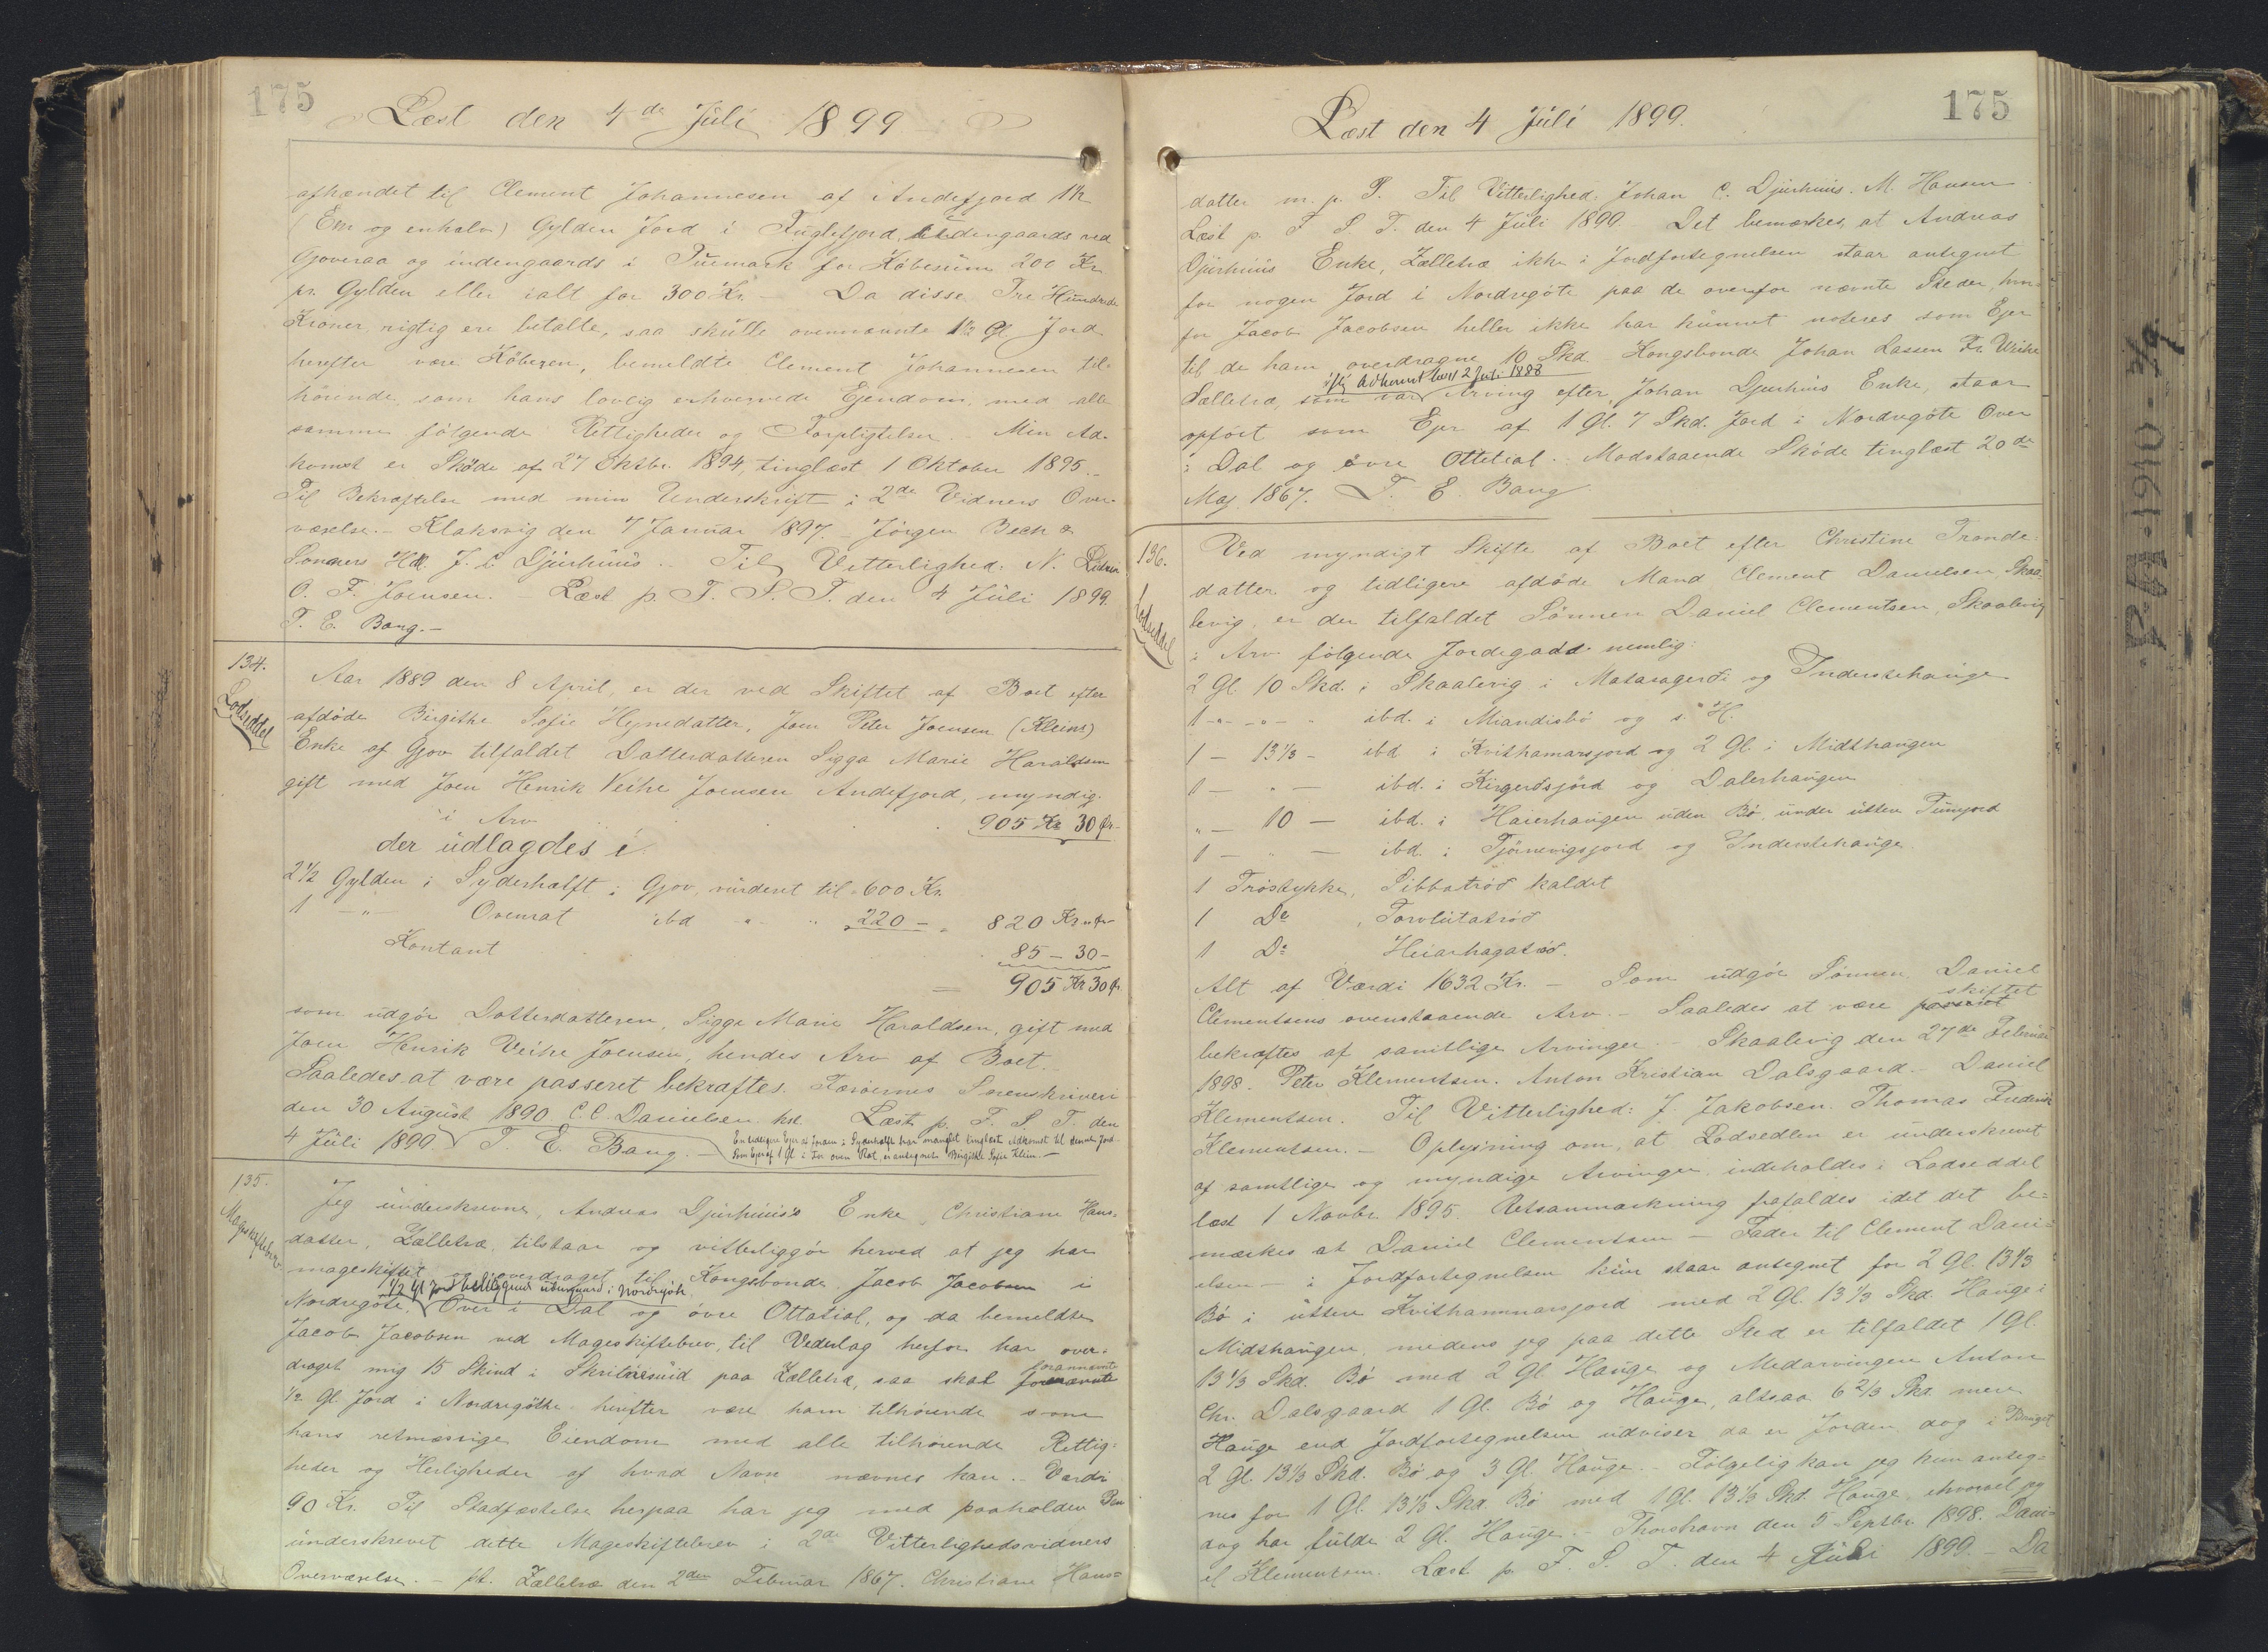 175
Læst den 4de Juli 1899
afhændet til Clement Johannesen af Andefjord 1½
(En og enhalv) Gylden Jord i Fuglefjord, udengaards ved
Gjoveraa og indengaards i Tunmark for Købesum 200 Kr
pr. Gylden eller ialt for 300 Kr. – Da disse Tre Hundrede
Kroner, rigtig ere betalte, saa skulle ovennævnte 1½ Gl Jord
herefter være Køberen, bemeldte Clement Johannesen til-
hörende, som hans lovlig erhvervede Ejendom, med alle
samme følgende Rettigheder og Forpligtelser. – Min Ad-
komst er Skøde af 27 Oktbr. 1894, tinglæst 1 Oktober 1895. –
Til Bekræftelse med min Underskrift i 2de Vidners Over-
værelse. – Klaksvig den 7 Januar 1897. – Jörgen Bech &
Sönners Hdl. J. C. Djurhuus. – Til Vitterlighed: N.
O. F. Joensen. – Læst p. F. S. T. den 4 Juli 1899.
T. E. Bang. –
134.
Lodseddel
Aar 1889 den 8 April, er der ved Skiftet af Boet efter
afdöde Birgithe Sofie Hejnedatter, Joen Peter Joensen (Kleins)
Enke af Gjov tilfaldet Datterdatteren Sigga Marie Haraldsen
gift med Joen Henrik Veihe Joensen Andefjord, myndig
i Arv 905 Kr 30 Ør –
der udlagdes i
2½ Gylden i Syderhalft i Gjov, vurderet til 600 Kr.
1 –"– Ovenrat ibd " " 220 – " 820 Kr " Ør
Kontant 85 – 30 –
= 905 Kr 30 Ør
som udgör Datterdatteren, Sigga Marie Haraldsen, gift med
Joen Henrik Veihe Joensen, hendes Arv af Boet. –
Saaledes at være passeret bekræftes. Færöernes Sorenskriveri
den 30 August 1890 C. C. Danielsen kst. Læst p. F. S. T. den
4 Juli 1899. T. E. Bang. – En tidligere Ejer af Jorden i Syderhalft har manglet tinglæste Adkomst til denne Jord.
Som Ejer af 1 Gl i for oven Rat, er antegnet Birgithe Sofie Klein. –
135.
Mageskiftebrev
Jeg underskrevne, Andreas Djurhuus's Enke, Christiane Hans-
datter, Lælletræ, tilstaar og vitterliggör herved at jeg har
mageskiftet og overdraget til Kongsbonde Jacob Jacobsen i
½ Gl Jord beliggende udengaard i Nordregöte
Nordregöte, Over i Dal og övre Ottatial, og da bemeldte
Jacob Jacobsen ved Mageskiftebrev, til Vederlag herfor har over-
draget mig 15 Skind i Skritnesuid paa Lælletræ, saa skal forannævnte
½ Gl. Jord i Nordregöthe herefter være ham tilhörende som
hans retmæssige Eiendom med alle tilhörende Rettig-
heder og Herligheder af hvad Navn nævnes kan. – Værdi
90 Kr. Til Stadfæstelse herpaa har jeg med paaholden Pen
underskrevet dette Mageskiftebrev i 2de Vitterlighedsvidners
Overværelse. – pt. Lælletræ den 2den Februar 1867. Christiane Hans=
175
Læst den 4 Juli 1899.
datter m. p. P. Til Vitterlighed: Johan C. Djurhuus. M. Hansen
Læst p. F S T. den 4 Juli 1899. Det bemærkes, at Andreas
Djurhuus Enke, Lælletræ ikke i Jordfortegnelsen staar antegnet
for nogen Jord i Nordregöte paa de overfor nævnte Steder, hvor-
for Jacob Jacobsen heller ikke har kunnet noteres som Ejer
til de ham overdragne 10 Skd. Kongsbonde Johan Lassen Fr. Weihe
iflg Adkomst læst 2 Juli 1888
Sælletræ, som var Arving efter, Johan Djurhuus Enke, staar
opfört som Ejer af 1 Gl. 7 Skd. Jord i Nordregöte Over
i Dal og övre Ottetial. Modstaaende Skøde tinglæst 20de
Maj 1867. T. E. Bang
136.
Lodseddel
Ved myndigt Skifte af Boet efter Christine Tronde-
datter og tidligere afdöde Mand Clement Danielsen Skaa-
levig, er der tilfaldet Sönnen Daniel Clementsen, Skaalevig
i Arv fölgende Jordegods nemlig:
2 Gl. 10 Skd. i Skaalevig i Mataragerði og Inderstehauge
1 – " – " – " ibd. i Miandisbö og s. H.
1 – 13⅓ – ibd i Kvithamarsjord og 2 Gl. i Midthaugen
1 – " – ibd. i Kirgerdsjörd og Dalerhaugen
" – 10 – ibd. i Haierhaugen uden Bö, under utten Tunnjord
1 – " – ibd. i Tjörnevigsjord og Inderstehauge.
1 Tröstykke, Sibbatröð kaldet
1 Do , Torvlutatröð
1 Do Heiarhagatröð.
Alt af Værdi 1632 Kr. – Som udgör Sönnen, Daniel
Clementsens ovenstaaende Arv. – Saaledes at være skiftet
bekræftes af samtlige Arvinger. – Skaalevig den 27de Februar
1898. Peter Klementsen. Anton Kristian Dalsgaard. – Daniel
Klementsen. Til Vitterlighed: J. Jakobsen. Thomas Frederik
Klementsen. – Oplysning om, at Lodsedlen er underskrevet
af samtlige og myndige Arvinger indeholdes i Lodseddel
læst 1 Novbr. 1895. Retsanmærkning frafaldes idet det be-
mærkes at Daniel Clementsen – Fader til Clement Dani-
elsen – i Jordfortegnelsen kun staar antegnet for 2 Gl. 13⅓
Bö i utten Kvithammarsjord med 2 Gl. 13⅓ Skd. Hauge i
Midthaugen, medens jeg paa dette Sted er tilfaldet 1 Gl.
13⅓ Skd. Bö med 2 Gl. Hauge og Medarvingen Anton
Chr. Dalsgaard 1 Gl. Bö og Hauge, altsaa 6⅔ Skd. mere
Hauge end Jordfortegnelsen udviser da er Jorden dog i Bauget
2 Gl. 13⅓ Skd. Bö og 3 Gl. Hauge. – Fölgelig kan jeg kun anteg-
nes for 1 Gl. 13⅓ Skd. Bö med 1 Gl. 13⅓ Skd. Hauge, ehvorvel jeg
dog har fulde 2 Gl. Hauge. – Thorshavn den 5 Septbr. 1898. Dani-
el Klementsen. Læst p. F. S. T. den 4 Juli 1899. – Da